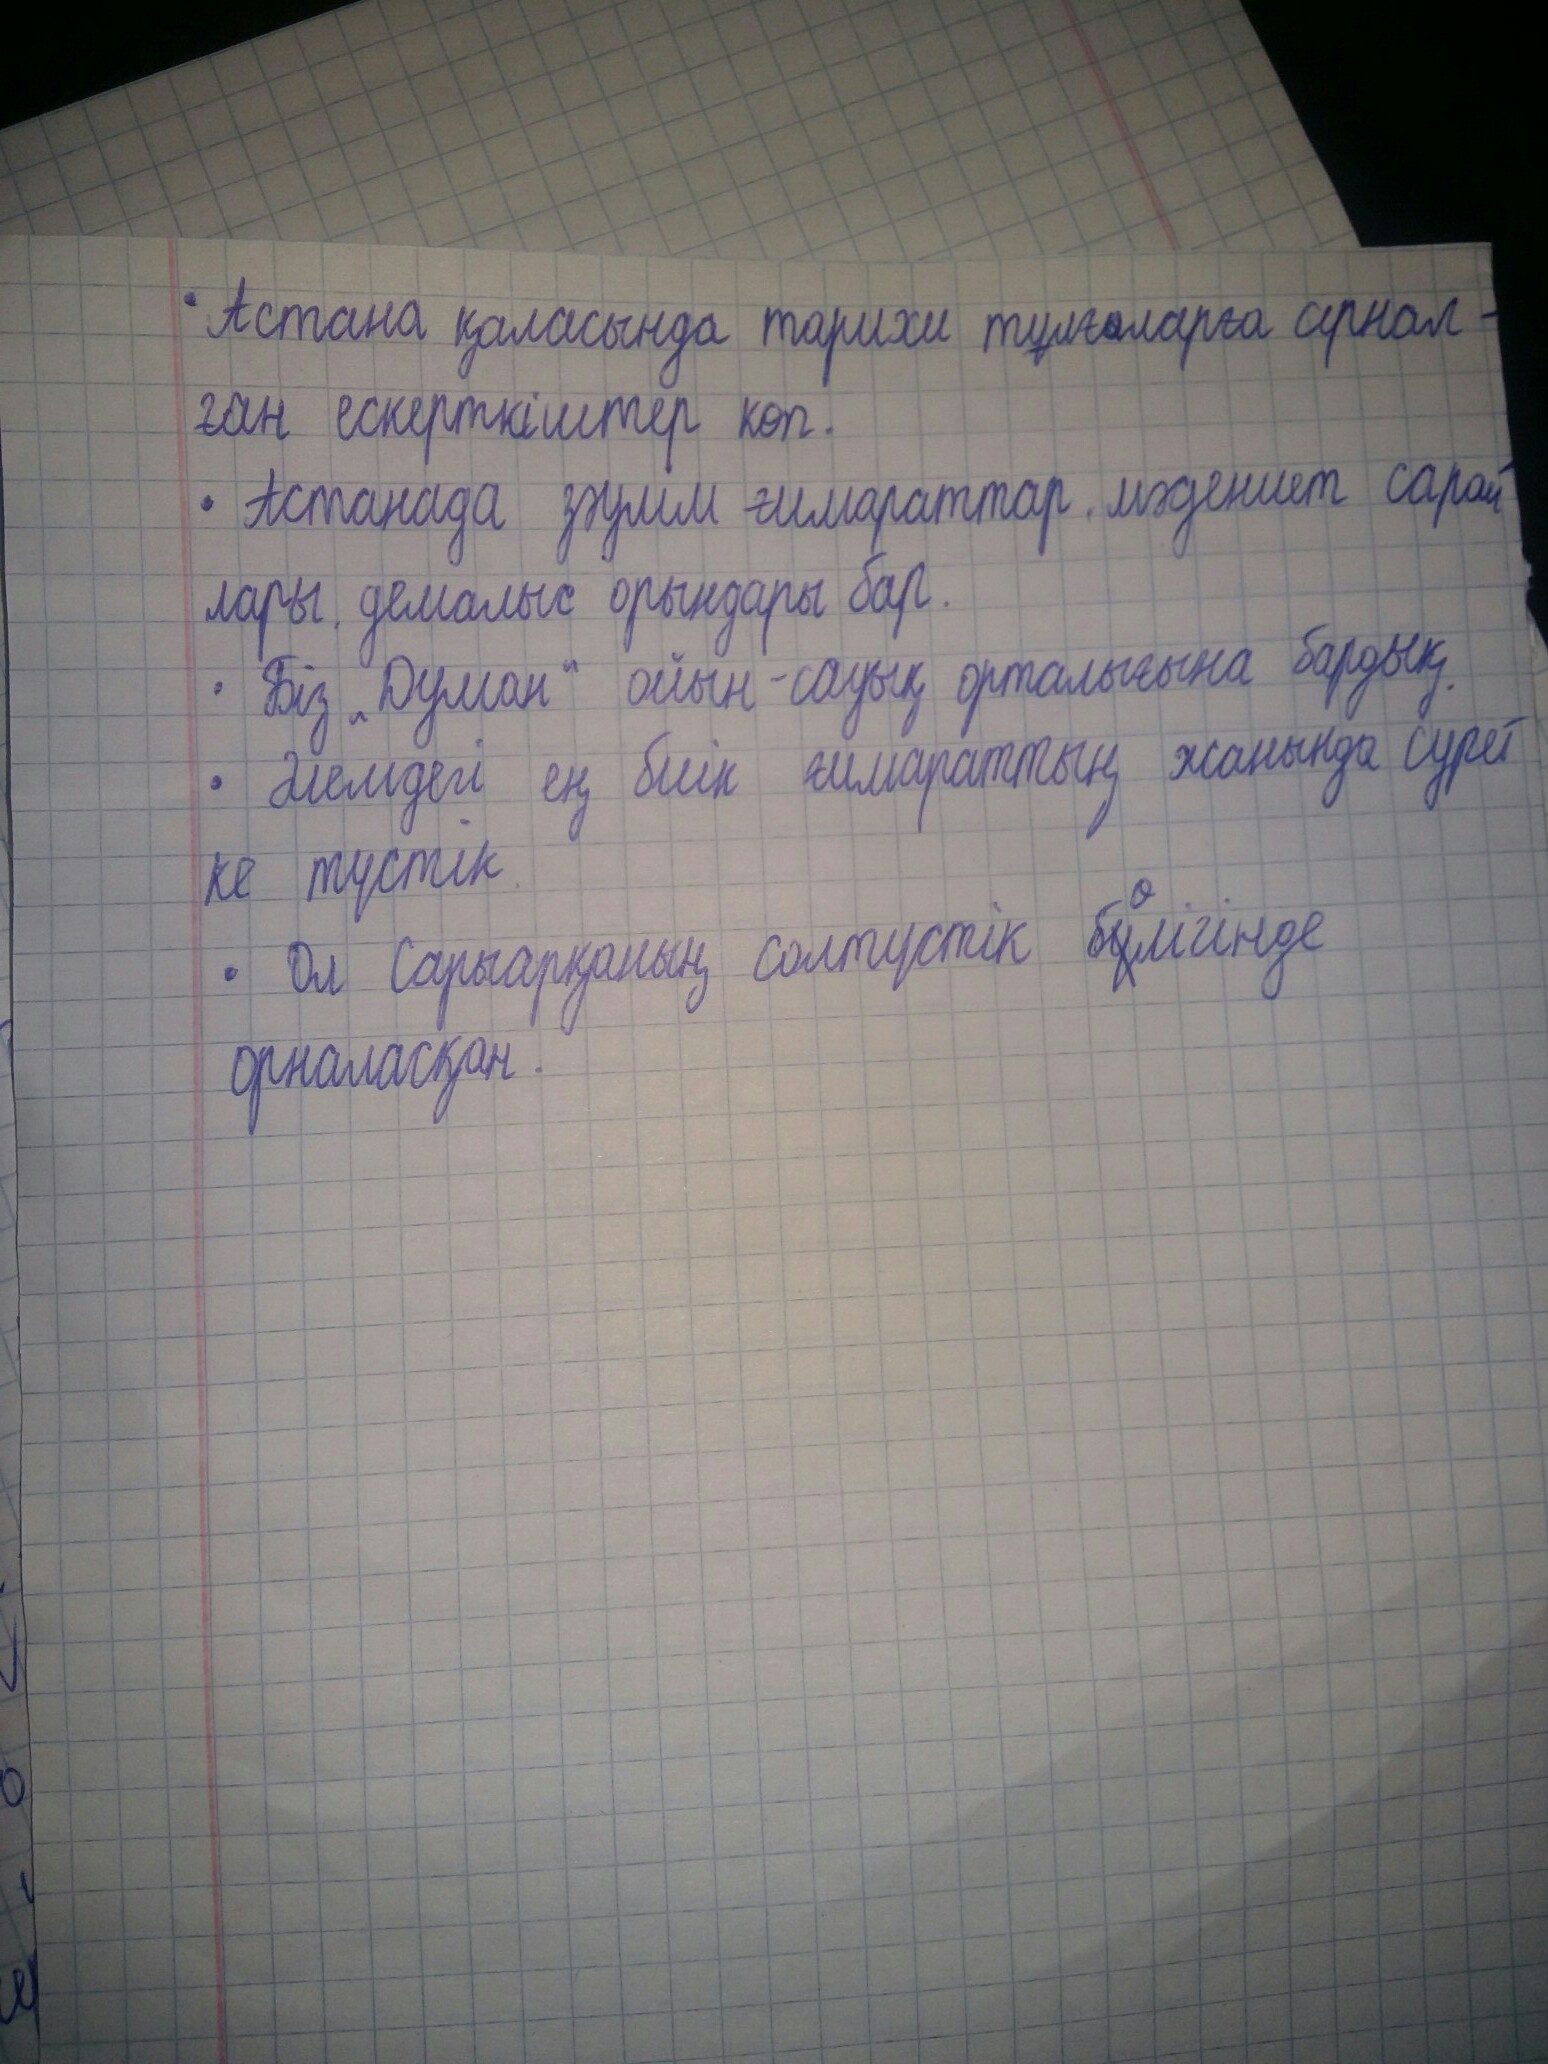 • Астана қаласында тарихи тұлғаларға арнал-
ған ескерткіштер көп.
• Астанада зәулім ғимараттар, мәдениет сарай
лары, демалыс орындары бар.
• Біз „Думан“ ойын-сауық орталығына бардық.
• Әлемдегі ең биік ғимараттың жанында сурет
ке түстік.
• Ол Сарыарқаның солтүстік бөлігінде
орналасқан.